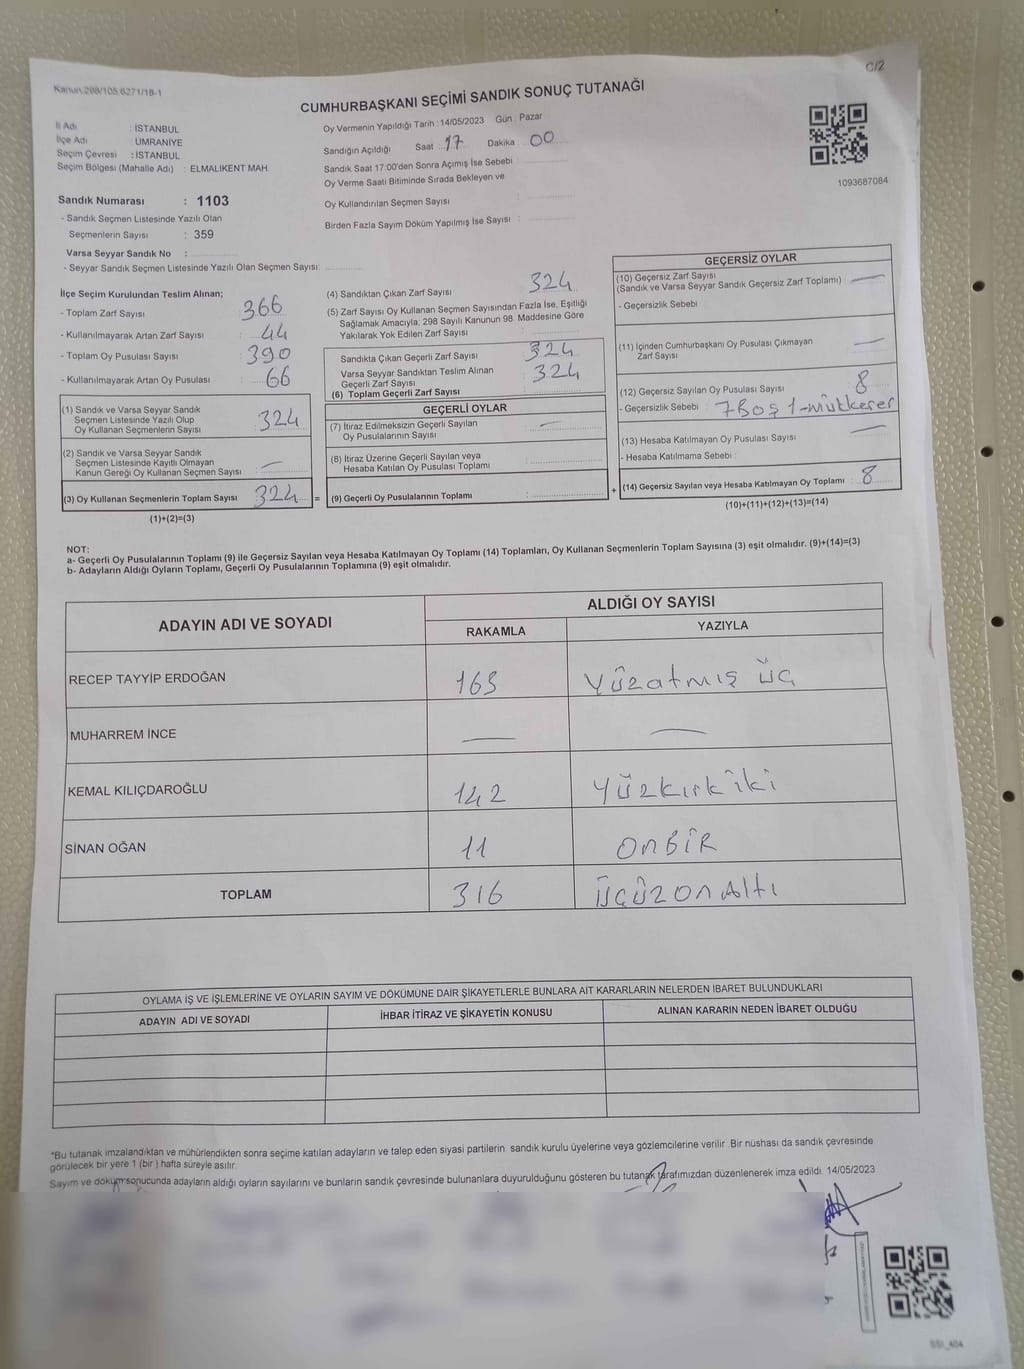 Kanun 298/105,6271/18-1
C/2
CUMHURBAŞKANI SEÇİMİ SANDIK SONUÇ TUTANAĞI
İl Adı : İSTANBUL
İlçe Adı : ÜMRANİYE
Seçim Çevresi : İSTANBUL
Seçim Bölgesi (Mahalle Adı) : ELMALIKENT MAH.
Sandık Numarası : 1103
- Sandık Seçmen Listesinde Yazılı Olan
Seçmenlerin Sayısı : 359
Varsa Seyyar Sandık No :
- Seyyar Sandık Seçmen Listesinde Yazılı Olan Seçmen Sayısı:
Oy Vermenin Yapıldığı Tarih : 14/05/2023 Gün : Pazar
Sandığın Açıldığı Saat 17 Dakika 00
Sandık Saat 17:00'den Sonra Açımış İse Sebebi :
Oy Verme Saati Bitiminde Sırada Bekleyen ve
Oy Kullandırılan Seçmen Sayısı :
Birden Fazla Sayım Döküm Yapılmış İse Sayısı :
1093687084
İlçe Seçim Kurulundan Teslim Alınan;
- Toplam Zarf Sayısı : 366
- Kullanılmayarak Artan Zarf Sayısı : 44
- Toplam Oy Pusulası Sayısı : 390
- Kullanılmayarak Artan Oy Pusulası : 66
(1) Sandık ve Varsa Seyyar Sandık
Seçmen Listesinde Yazılı Olup
Oy Kullanan Seçmenlerin Sayısı : 324
(2) Sandık ve Varsa Seyyar Sandık
Seçmen Listesinde Kayıtlı Olmayan
Kanun Gereği Oy Kullanan Seçmen Sayısı : —
(3) Oy Kullanan Seçmenlerin Toplam Sayısı : 324 =
(1)+(2)=(3)
(4) Sandıktan Çıkan Zarf Sayısı : 324
(5) Zarf Sayısı Oy Kullanan Seçmen Sayısından Fazla İse, Eşitliği
Sağlamak Amacıyla; 298 Sayılı Kanunun 98. Maddesine Göre
Yakılarak Yok Edilen Zarf Sayısı :
Sandıkta Çıkan Geçerli Zarf Sayısı : 324
Varsa Seyyar Sandıktan Teslim Alınan
Geçerli Zarf Sayısı : 324
(6) Toplam Geçerli Zarf Sayısı :
GEÇERLİ OYLAR
(7) İtiraz Edilmeksizin Geçerli Sayılan
Oy Pusulalarının Sayısı : —
(8) İtiraz Üzerine Geçerli Sayılan veya
Hesaba Katılan Oy Pusulası Toplamı :
(9) Geçerli Oy Pusulalarının Toplamı : +
GEÇERSİZ OYLAR
(10) Geçersiz Zarf Sayısı
(Sandık ve Varsa Seyyar Sandık Geçersiz Zarf Toplamı) : —
- Geçersizlik Sebebi :
(11) İçinden Cumhurbaşkanı Oy Pusulası Çıkmayan
Zarf Sayısı : —
(12) Geçersiz Sayılan Oy Pusulası Sayısı : 8
- Geçersizlik Sebebi : 7 Boş 1-mükkerer
(13) Hesaba Katılmayan Oy Pusulası Sayısı : —
- Hesaba Katılmama Sebebi :
(14) Geçersiz Sayılan veya Hesaba Katılmayan Oy Toplamı : 8
(10)+(11)+(12)+(13)=(14)
NOT:
a- Geçerli Oy Pusulalarının Toplamı (9) ile Geçersiz Sayılan veya Hesaba Katılmayan Oy Toplamı (14) Toplamları, Oy Kullanan Seçmenlerin Toplam Sayısına (3) eşit olmalıdır. (9)+(14)=(3)
b- Adayların Aldığı Oyların Toplamı, Geçerli Oy Pusulalarının Toplamına (9) eşit olmalıdır.
ADAYIN ADI VE SOYADI
ALDIĞI OY SAYISI
RAKAMLA YAZIYLA
RECEP TAYYİP ERDOĞAN 163 Yüzatmış üç
MUHARREM İNCE — —
KEMAL KILIÇDAROĞLU 142 Yüzkırkiki
SİNAN OĞAN 11 OnBİR
TOPLAM 316 Üçüzon Altı
OYLAMA İŞ VE İŞLEMLERİNE VE OYLARIN SAYIM VE DÖKÜMÜNE DAİR ŞİKAYETLERLE BUNLARA AİT KARARLARIN NELERDEN İBARET BULUNDUKLARI
ADAYIN ADI VE SOYADI İHBAR İTİRAZ VE ŞİKAYETİN KONUSU ALINAN KARARIN NEDEN İBARET OLDUĞU
*Bu tutanak imzalandıktan ve mühürlendikten sonra seçime katılan adayların ve talep eden siyasi partilerin sandık kurulu üyelerine veya gözlemcilerine verilir. Bir nüshası da sandık çevresinde
görülecek bir yere 1 (bir ) hafta süreyle asılır.
Sayım ve döküm sonucunda adayların aldığı oyların sayılarını ve bunların sandık çevresinde bulunanlara duyurulduğunu gösteren bu tutanak tarafımızdan düzenlenerek imza edildi. 14/05/2023
SSİ_404